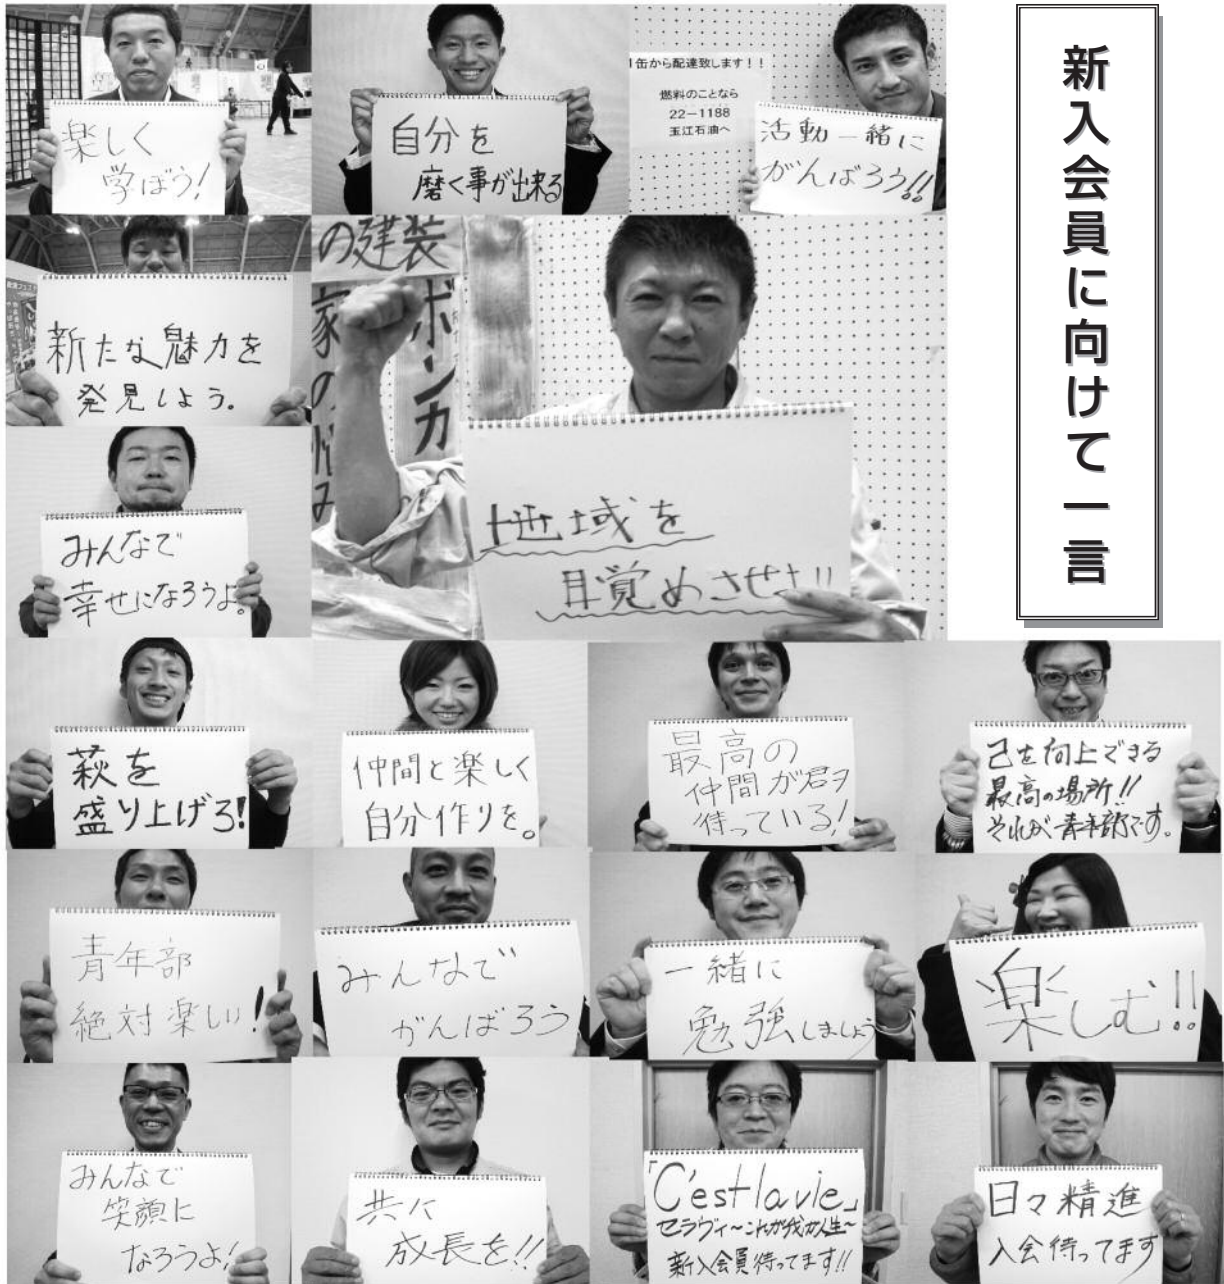 新入会員に向けて一言
楽しく
学ぼう!
自分を
磨く事が出来る
1缶から配達致します!!
燃料のことなら
22-1188
玉江石油へ
活動一緒に
がんばろう!!
新たな魅力を
発見しよう。
の建装
ボンカ
地域を
目覚めさせよ!!
みんなで
幸せになろうよ。
萩を
盛り上げろ!
仲間と楽しく
自分作りを。
最高の
仲間が君ヲ
待っている!
己を向上できる
最高の場所!!
それが青年部です。
青年部
絶対楽しい!
みんなで
がんばろう
一緒に
勉強しましょう
楽しむ!!
みんなで
笑顔に
なろうよ!
共に
成長を!!
「C'est la vie」
セラヴィ~これが我が人生~
新入会員待ってます!!
日々精進
入会待ってます